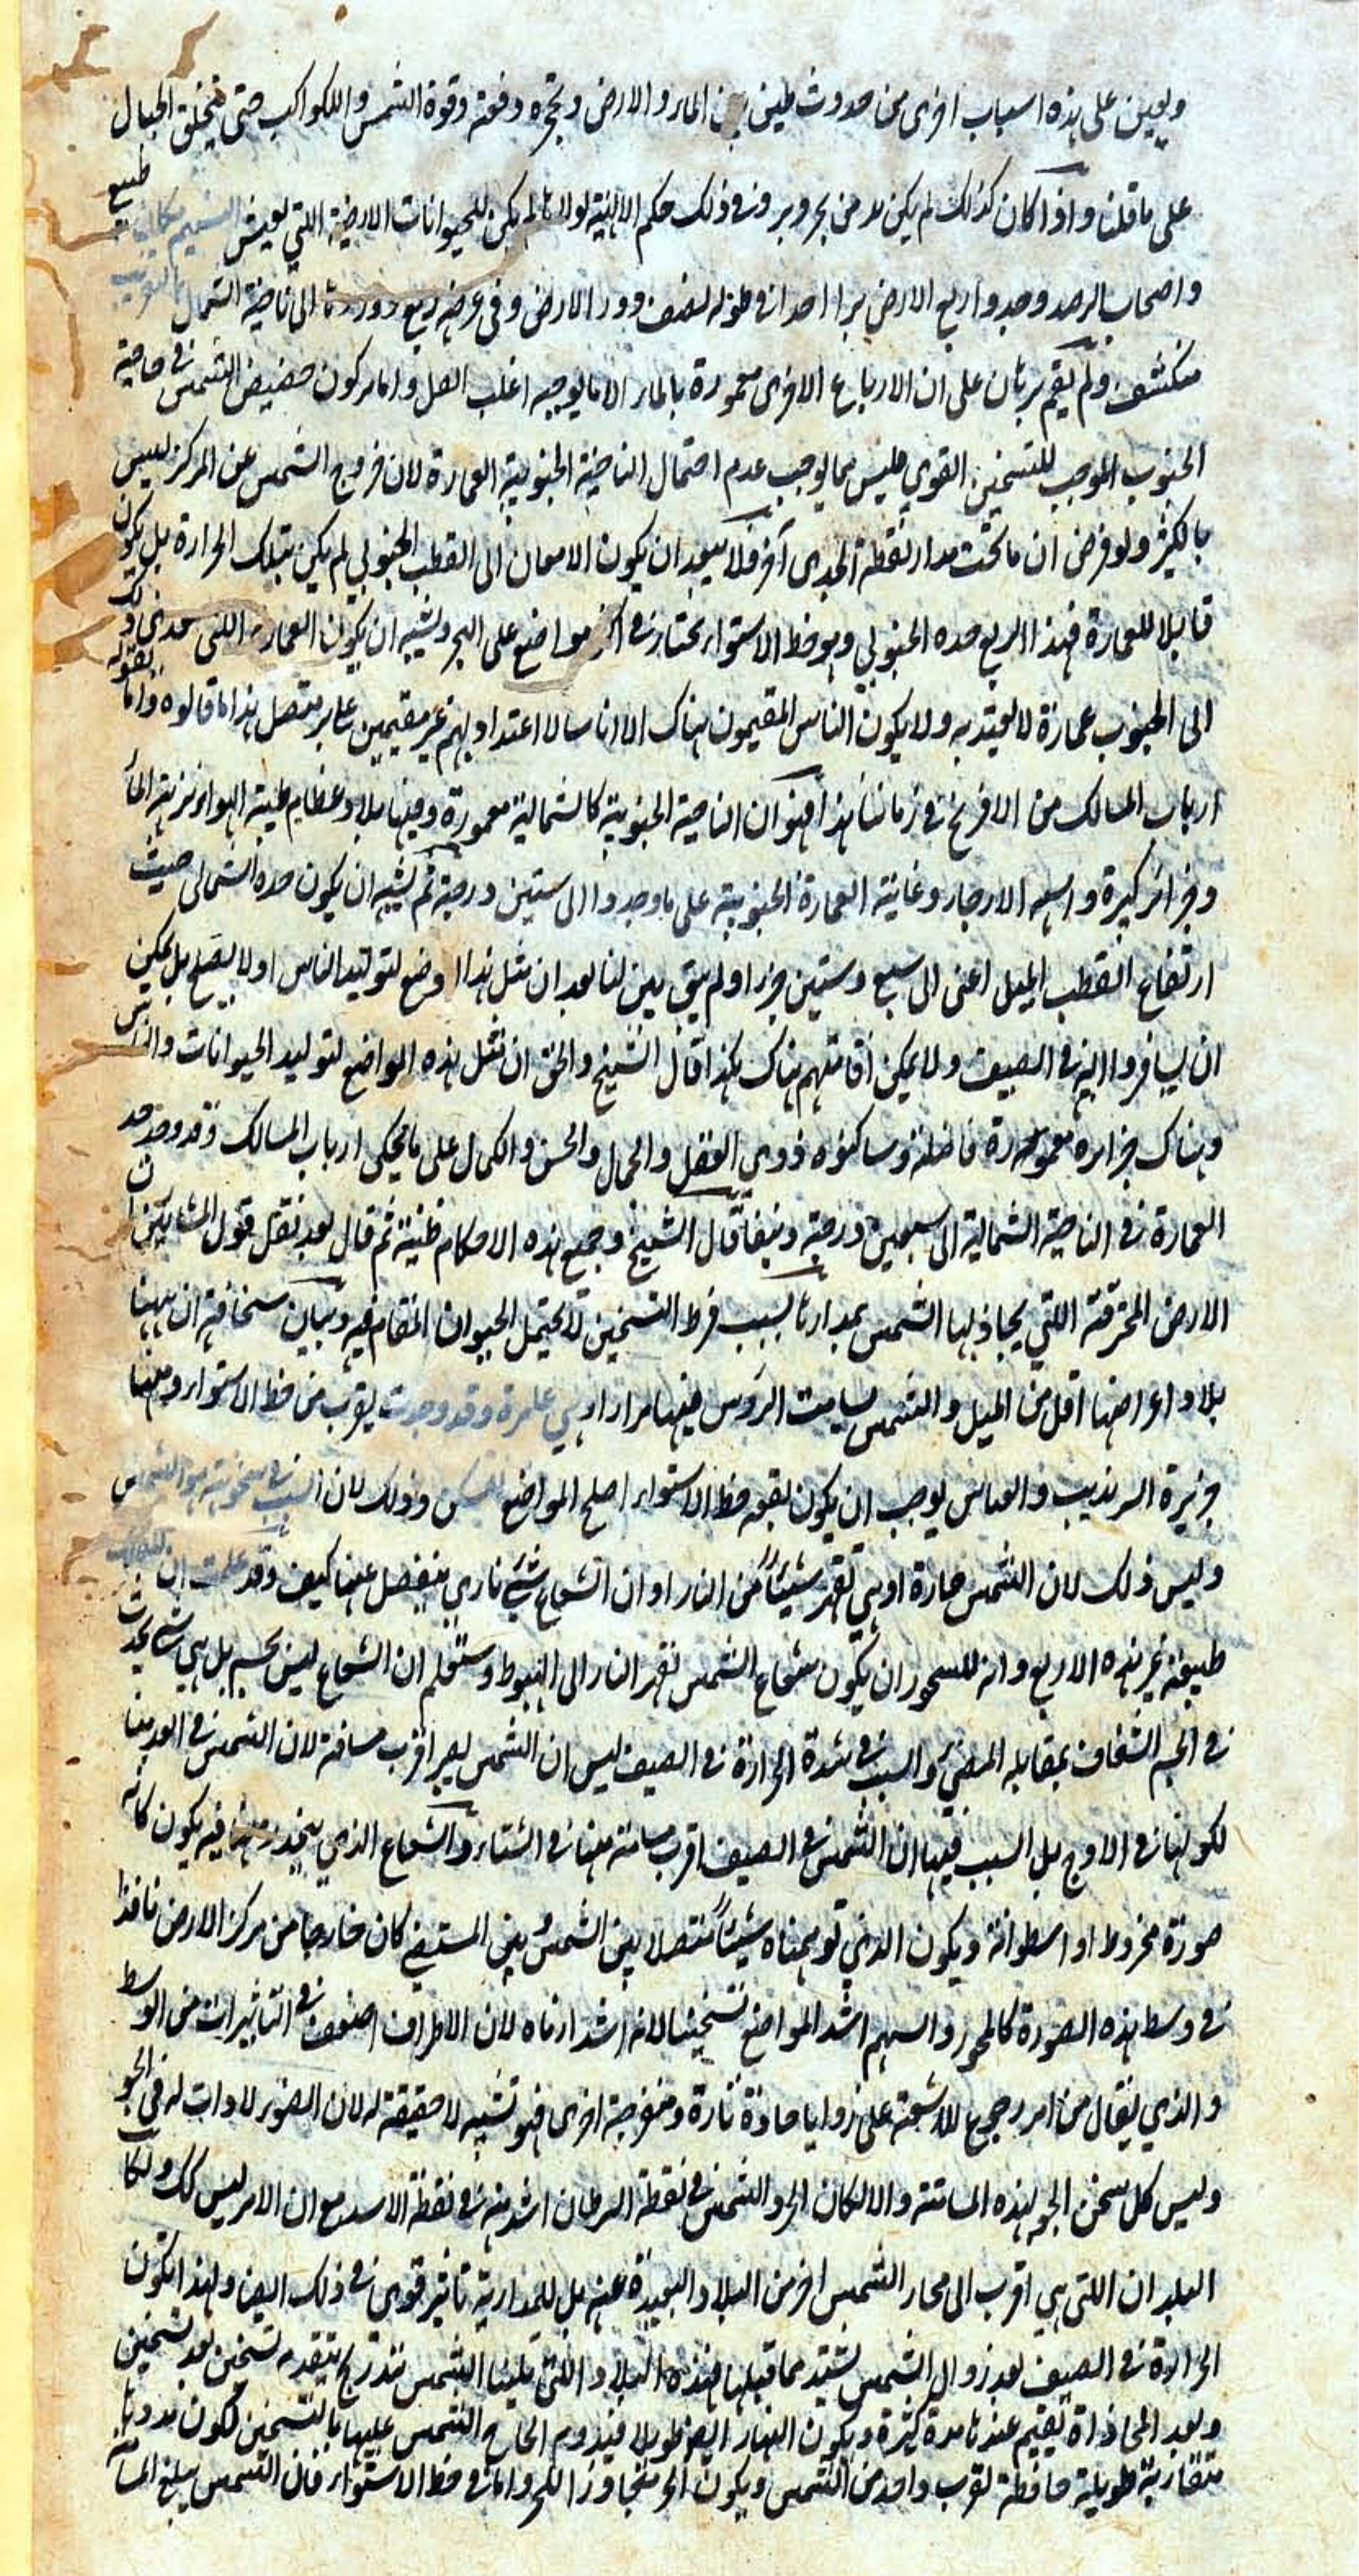 ويعين على هذه اسباب اخرى من حدوث طين بين الماء والارض وتحجره دفعة وقوة الشمس والكواكب حتى يتخلق الجبال
على ما قلنا واذا كان كذلك لم يكن بد من بحر وبر وفى ذلك حكم الالهية لولاها لم يكن للحيوانات الارضية اللتي تعيش النسيم مكان طبيع
واصحاب الرصد وجدوا ربع الارض برا احدا فى طوله نصف دور الارض وفى عرضه ربع دورها الى ناحية الشمال بالتقريب
منكشف ولم يقم برهان على ان الارباع الاخرى مغمورة بالماء الا ما يوجبه اغلب الظن واما بركون حضيض الشمس فى ناحية
الجنوب الموجب للتسخين القوي فليس مما يوجب عدم احتمال الناحية الجنوبية العمارة لان خروج الشمس عن المركز ليس
بالكثير ولو فرض ان ما تحت مدار نقطة الجدى آخر فلا يبعد ان يكون الامعان الى القطب الجنوبي لم يكن بتلك الحرارة بل يكون
قابلا للعمارة فهذا الربع حده الجنوبي وهو خط الاستواء يحتازه فى اكثر مواضع على البحر ويشبه ان يكون العمارة اللتى
الى الجنوب عمارة لا يعتد به ولا يكون الناس المقيمون هناك الا اناسا لا اعتداد بهم غير مقيمين على بر متصل هذا ما قالوه واما
ارباب المسالك من الافرنج فى زماننا هذا فهو ان الناحية الجنوبية كالشمالية معمورة وفيها بلاد عظام طيبة الهواء نزيهة الماء
وجزائر كبيرة واسعه الارجاء وغاية العمارة الجنوبية على ما وجدوا الى ستين درجة ثم يشبه ان يكون حده الشمالى حيث
ارتفاع القطب الميل اعنى الى سبع وستين جزءا ولم يتبين لنا بعد ان مثل هذا وضع لتوليد الناس او لا يصلح بل يمكن
ان يسافروا اليه فى الصيف ولا يمكن اقامتهم هناك هكذا قال الشيخ والحق ان مثل هذه المواضع لتوليد الحيوانات والناس
وهناك جزائره معمورة فاضلة وساكنوه ذوى العقل والجمال والحسن والكمال على ما يحكى ارباب المسالك وقد وجد حد
العمارة فى الناحية الشمالية الى سبعين درجة ونيفا قال الشيخ وجميع هذه الاحكام ظنية ثم قال بعد نقل قول المشائين ان
الارض المحترقة اللتي يحاذيها الشمس بمدارها بسبب فرط التسخين لا يحتمل الحيوان المقام فيه وبيان سخافته ان ههنا
بلادا عراضها اقل من الميل والشمس يسامت الروس فيها مرارا وهي عامرة وقد وجدت يقرب من خط الاستواء ومنها
جزيرة السرنديب والقياس يوجب ان يكون بقعة خط الاستواء اصلح المواضع للسكنى وذلك لان السبب فى سخونته هو الشمس
وليس ذلك لان الشمس حارة او هي تقهر شيئا من النار او ان الشعاع شيء ناري ينفصل عنها كيف وقد علمت ان
طبيعة غير هذه الاربع وانه ان يكون شعاع الشمس تقهر النار الى الهبوط وستعلم ان الشعاع ليس بجسم بل هي شيء يحدث
فى الجسم الشفاف بمقابلة المضيء والسبب فى شدة الحرارة فى الصيف ليس ان الشمس يصير اقرب مسافة لان الشمس فى ابعد منا
لكونها فى الاوج بل السبب فيها ان الشمس فى الصيف اقرب مسامتة منها فى الشتاء والشعاع الذي ينحدر منها فيه يكون كانه
صورة مخروط او اسطوانة ويكون الذي توهمناه شيئا متصلا بين الشمس بين المستضيء كان خارجا من مركز الارض نافذا
فى وسط هذه الصورة كالمحور والسهم اشد المواضع تسخينا لانه اشد ارناه لان الاطراف اضعف فى التاثيرات من الوسط
والذي يقال من امر رجوع الاشعة على زوايا حادة تارة ومنفرجة اخرى فهو تشبيه لا حقيقة له لان الضوء لا ذات له فى الجو
وليس كل سخن الجو لهذه المسامتة والا لكان الحر والشمس فى نقطة السرطان اشد منه فى نقطة الاسد مع ان الامر ليس كك ولكا
البلدان اللتى هي اقرب الى مدار الشمس احر من البلاد البعيدة عنه بل للمدارية تاثير قوي فى ذلك ايضا ولهذا تكون
الحرارة فى الصيف بعد زوال الشمس يشتد مما قبلها فهذه البلاد اللتى يليها الشمس بتدريج يتقدمه تسخين بعد تسخين
وبعد المحاذاة يقيم عندها مدة كثيرة ويكون النهار ايضا طويلا فيدوم الحاح الشمس عليها بالتسخين لكون مدتها
متقاربة طويلة حافظة لقرب واحد من الشمس ويكون الحر متجاوزا للحر واما فى خط الاستواء فان الشمس يبلغ المسامتة